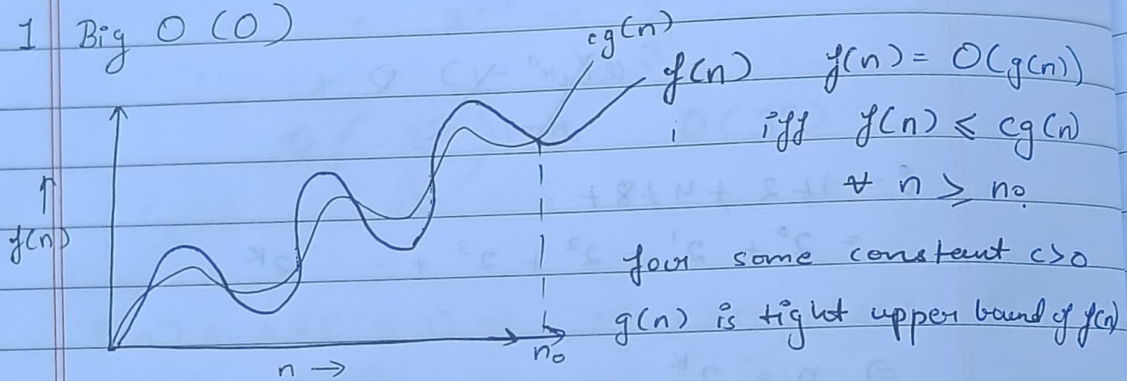 1 Big O (O)
cg(n)
f(n) f(n) = O(g(n))
iff f(n) ≤ cg(n)
∀ n ≥ n₀
f(n) ↑
for some constant c>0
g(n) is tight upper bound of f(n)
n₀
n →